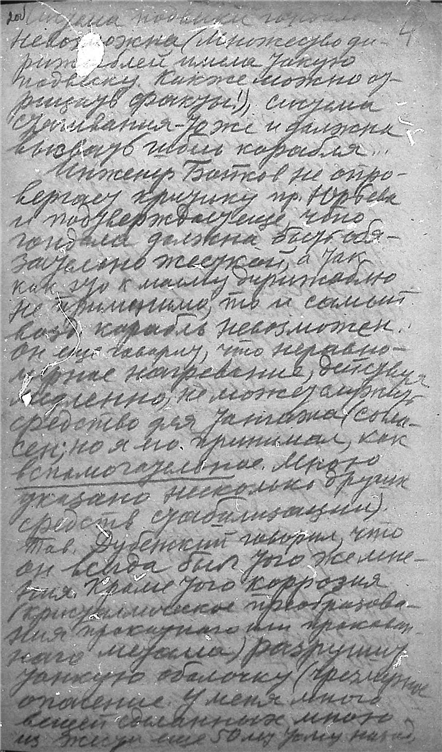 система подвески гондолы
невозможна (множество ди-
рижаблей имела такую
подвеску. Как же можно от-
рицать факты!), система
стягивания тоже и должна
вызвать гибель корабля...
Инженер Бойков не опро-
вергает критику пр. Юрьева
и подтверждает еще, что
гондола должна быть обя-
зательно жесткой, а так
как это к моему дирижаблю
не применимо, то и самый
корабль невозможен.
Он еще говорит, что неравно-
мерное нагревание, действуя
медленно, не может служить
средство для (согла-
сен; но я его принимал, как
вспомогательное. Мною
указано несколько других
средств стабилизации).
Тов. Дубенский говорил, что
он всегда был того же мне-
ния. Кроме того коррозия
(кристаллическое преобразова-
ния прокатного или
ного металла) разрушит
тонкую оболочку (чрезмерное
опасение. У меня много
вещей сделанных мною
из жести еще 50 лет тому назад